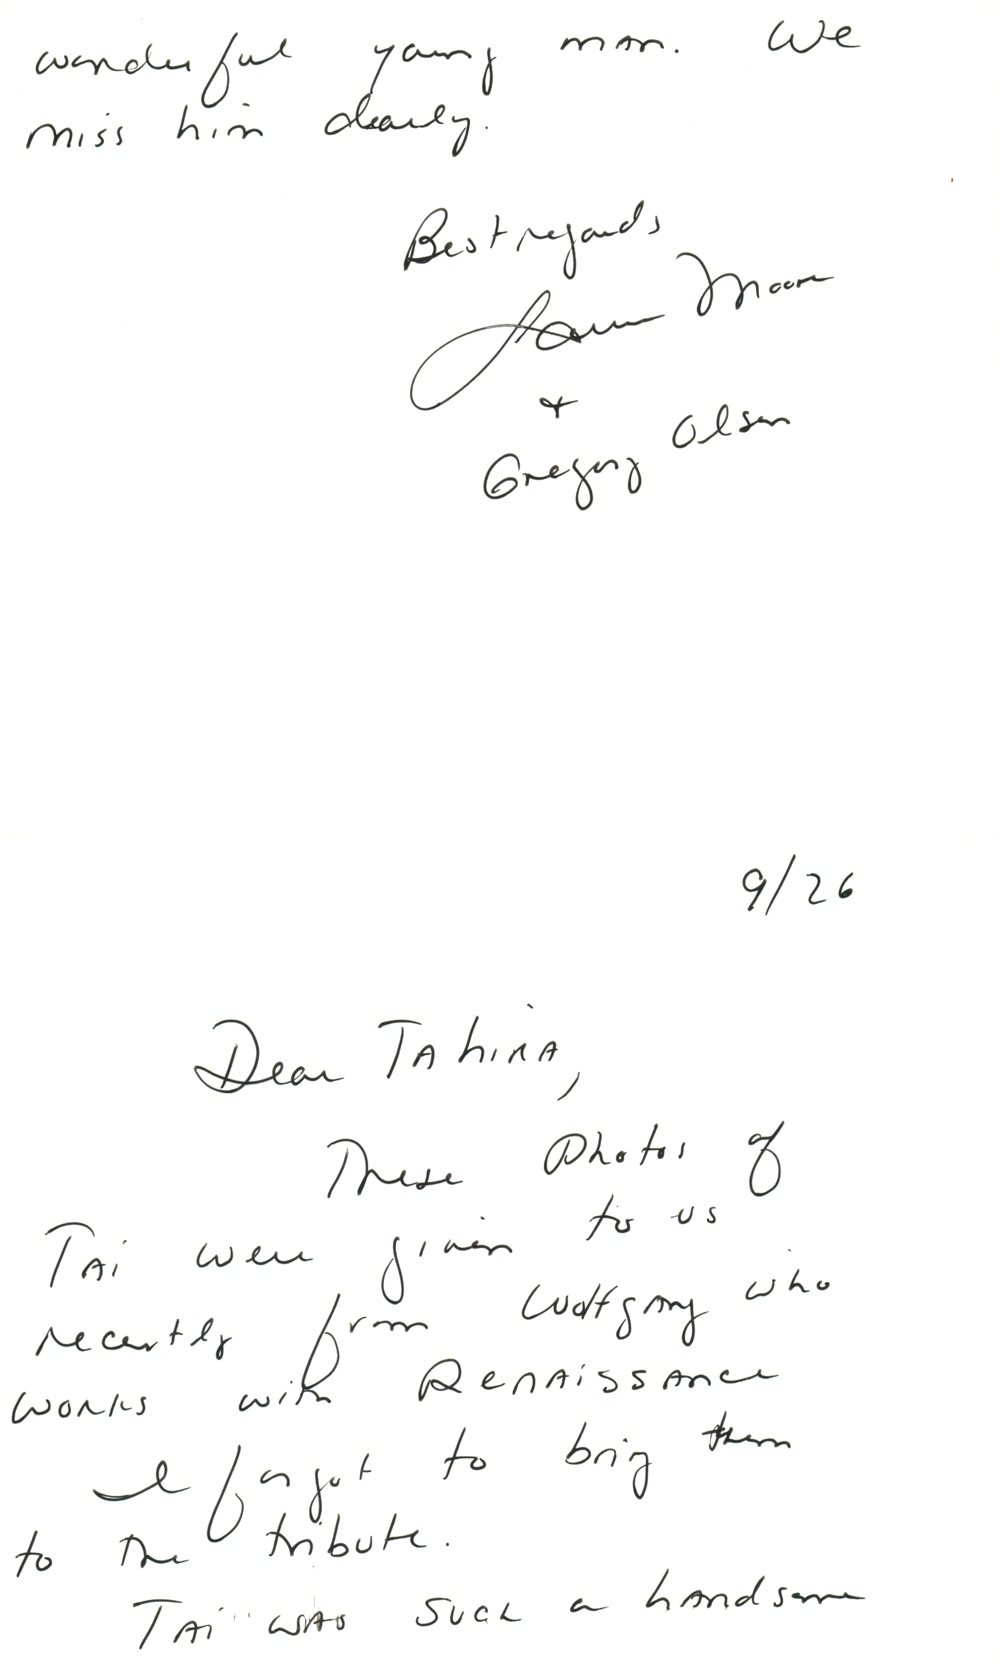 wonderful young man. We
miss him dearly.
Best regards
Moore
+
Gregory Olsen
9/26
Dear Tahira,
These photos of
Tai were given to us
recently from Wolfgang who
works with Renaissance
I forgot to bring them
to the tribute.
Tai was such a handsome